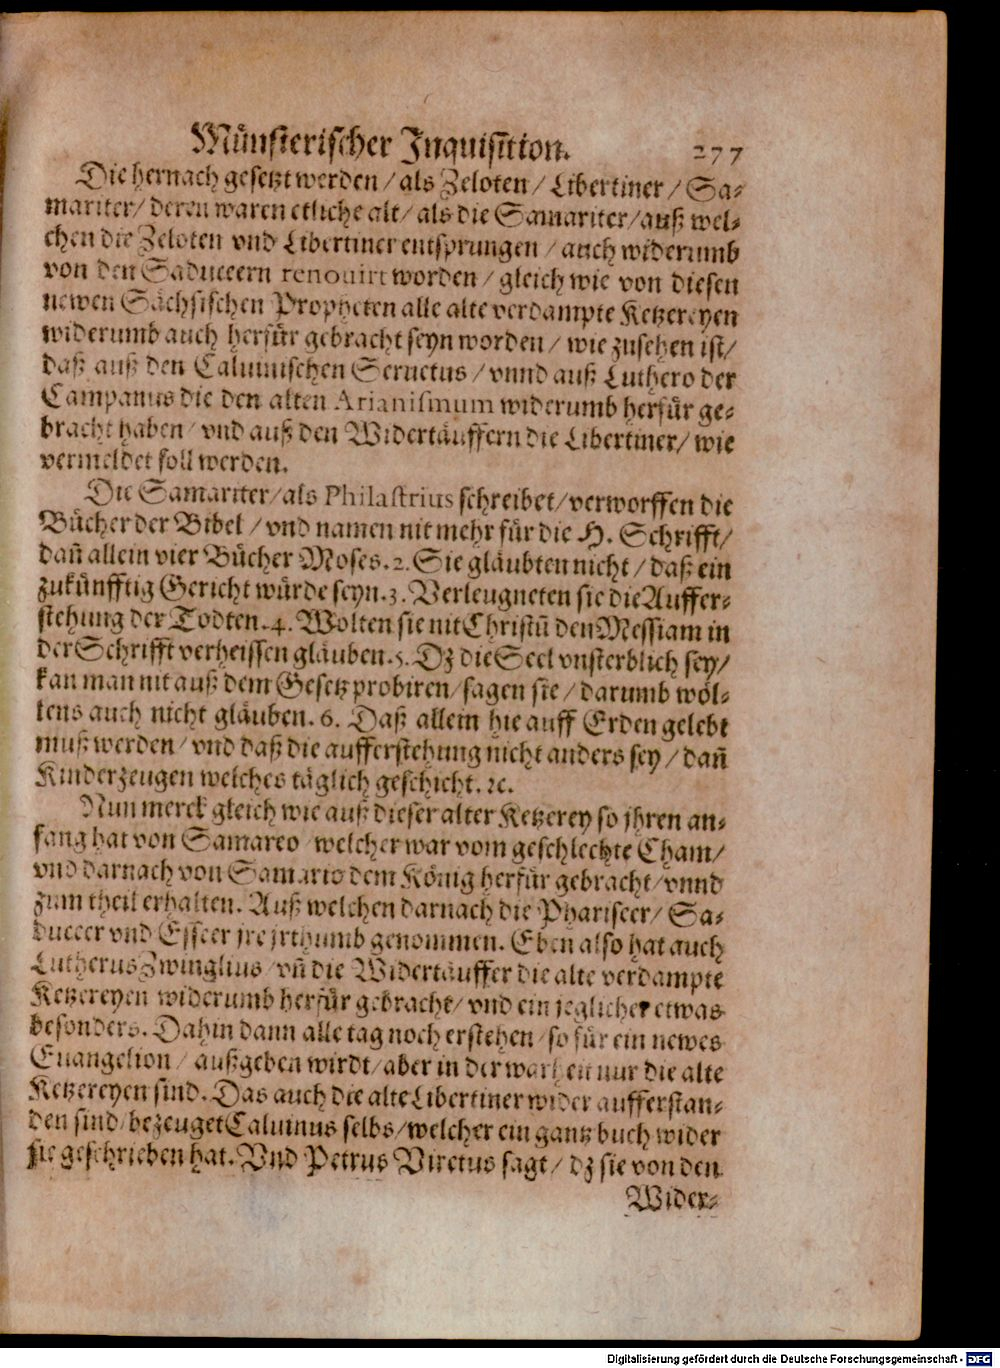 Münsterischer Inquisition. 277
Die hernach gesetzt werden / als Zeloten / Libertiner / Sa-
mariter / deren waren etliche alt / als die Samariter / auß wel-
chen die Zeloten vnd Libertiner entsprungen / auch widerumb
von den Saduceern renouirt worden / gleich wie von diesen
newen Sächsischen Propheten alle alte verdampte Ketzereyen
widerumb auch herfür gebracht seyn worden / wie zusehen ist /
daß auß den Caluinischen Seruetus / vnnd auß Luthero der
Campanus die den alten Arianismum widerumb herfür ge-
bracht haben / vnd auß den Widertäuffern die Libertiner / wie
vermeldet soll werden.
Die Samariter / als Philastrius schreibet / verworffen die
Bücher der Bibel / vnd namen nit mehr für die H. Schrifft /
dañ allein vier Bücher Moses. 2. Sie gläubten nicht / daß ein
zukünfftig Gericht würde seyn. 3. Verleugneten sie die Auffer-
stehung der Todten. 4. Wolten sie nit Christũ den Messiam in
der Schrifft verheissen gläuben. 5. Dz die Seel vnsterblich sey /
kan man nit auß dem Gesetz probiren / sagen sie / darumb wöl-
lens auch nicht gläuben. 6. Daß allein hie auff Erden gelebt
muß werden / vnd daß die aufferstehung nicht anders sey / dañ
Kinderzeugen welches täglich geschicht. ꝛc.
Nun merck gleich wie auß dieser alter Ketzerey so jhren an-
fang hat von Samareo / welcher war vom geschlechte Cham /
vnd darnach von Samario dem König herfür gebracht / vnnd
zum theil erhalten. Auß welchen darnach die Phariseer / Sa-
duceer vnd Esseer jre jrthumb genommen. Eben also hat auch
Lutherus Zwinglius / vñ die Widertäuffer die alte verdampte
Ketzereyen widerumb herfür gebracht / vnd ein jeglicher etwas
besonders. Dahin dann alle tag noch erstehen / so für ein newes
Euangelion / außgeben wirdt / aber in der warheit nur die alte
Ketzereyen sind. Das auch die alte Libertiner wider aufferstan-
den sind / bezeuget Caluinus selbs / welcher ein gantz buch wider
sie geschrieben hat. Vnd Petrus Viretus sagt / dz sie von den
Wider-
Digitalisierung gefördert durch die Deutsche Forschungsgemeinschaft - DFG